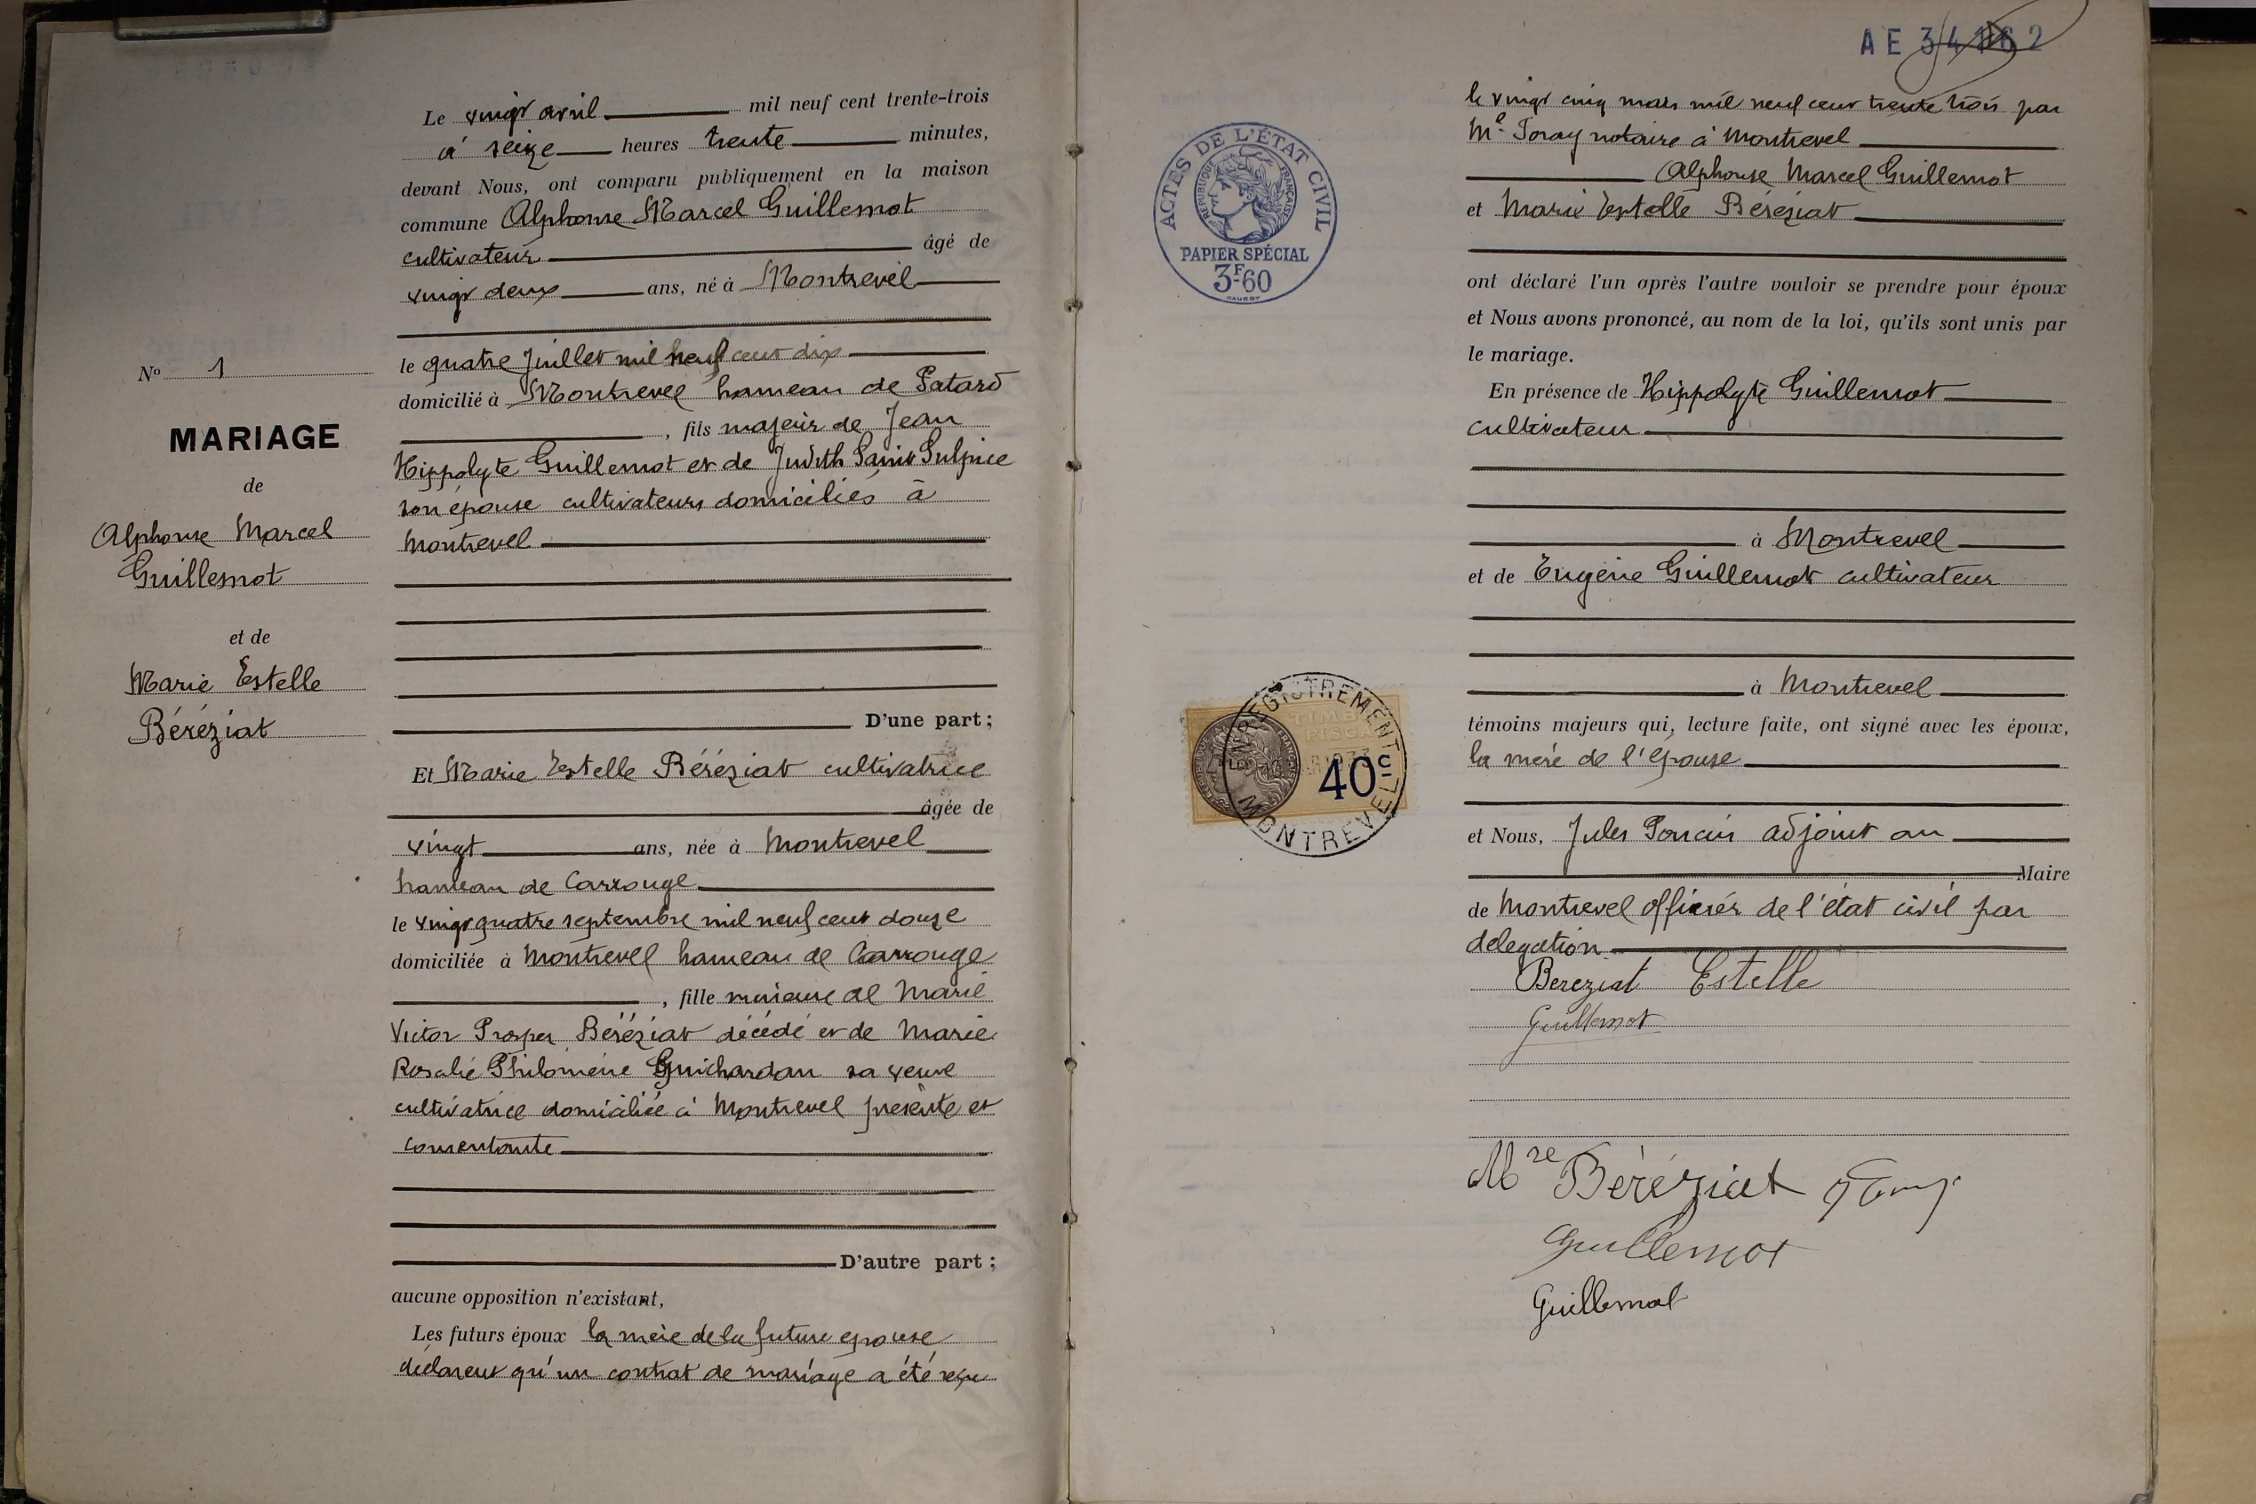 N° 1
MARIAGE
de
Alphonse Marcel
Guillemot
et de
Marie Estelle
Béréziat
Le vingt avril mil neuf cent trente-trois
à seize heures trente minutes,
devant Nous, ont comparu publiquement en la maison
commune Alphonse Marcel Guillemot
cultivateur âgé de
vingt deux ans, né à Montrevel
le quatre Juillet mil neuf cent dix
domicilié à Montrevel hameau de
, fils majeur de Jean
Hippolyte Guillemot et de Judith Saint Sulpice
son épouse cultivateurs domiciliés à
Montrevel
D'une part ;
Et Marie Estelle Béréziat cultivatrice
âgée de
vingt ans, née à Montrevel
hameau de Carrouge
le vingt quatre septembre mil neuf cent douze
domiciliée à Montrevel hameau de Carrouge
, fille mineure de Marie
Victor Prosper Béréziat décédé et de Marie
Rosalie Philomène Guichardan sa veuve
cultivatrice domiciliée à Montrevel présente et
consentante
D'autre part ;
aucune opposition n'existant,
Les futurs époux la mère de la future epouse
déclarent qu'un contrat de mariage a été reçu
AE 34162
ACTES DE L'ÉTAT CIVIL
RÉPUBLIQUE FRANÇAISE
PAPIER SPÉCIAL
3F60
le vingt cinq mars mil neuf cent trente trois par
Me notaire à Montrevel
Alphonse Marcel Guillemot
et Marie Estelle Béréziat
ont déclaré l'un après l'autre vouloir se prendre pour époux
et Nous avons prononcé, au nom de la loi, qu'ils sont unis par
le mariage.
En présence de Hippolyte Guillemot
cultivateur
à Montrevel
et de Eugène Guillemot cultivateur
à Montrevel
témoins majeurs qui, lecture faite, ont signé avec les époux,
la mère de l'épouse
et Nous, Jules adjoint au
Maire
de Montrevel officier de l'état civil par
delegation
ENREGISTREMENT
TIMBRE
FISCAL
40c
MONTREVEL
Bereziat Estelle
Guillemot
Mre Béréziat
Guillemot
Guillemot